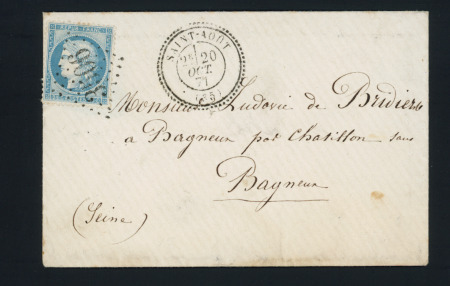 REPUB. FRANC.
SAINT-AOUT
2E 20
OCT.
71
(35)
Monsieur Ludovic de Bridiers
a Bagneux par Chatillon sous
Bagneux
(Seine)